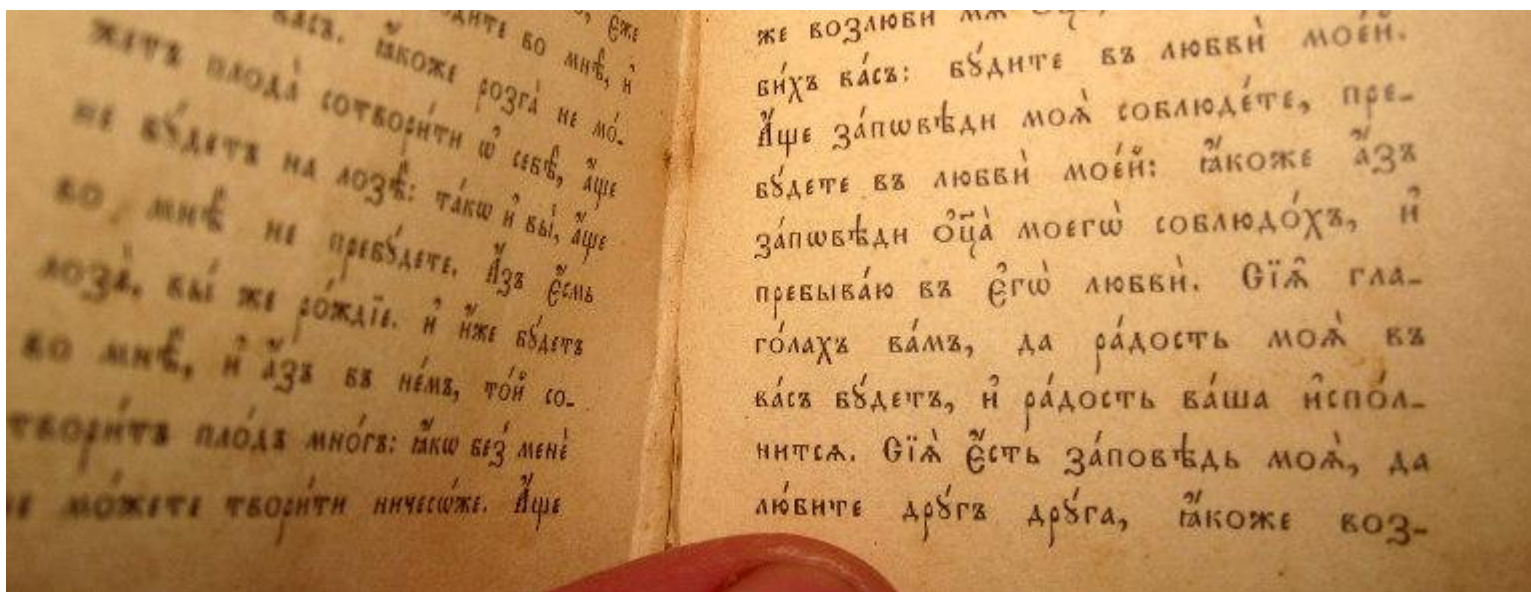 ѻ, є҆́же
дите во мнѣ̀, и҆
васъ. ꙗ҆́коже розга̀ не мо́-
жетъ плода̀ сотвори́ти ѡ҆ себѣ̀, а҆́ще
не бꙋ́детъ на лозѣ̀: та́кѡ и҆ вы̀, а҆́ще
во мнѣ̀ не пребꙋ́дете. А҆́зъ є҆́смь
лоза̀, вы́ же ро́ждїе. и҆ и҆́же бꙋ́детъ
во мнѣ̀, и҆ а҆́зъ въ не́мъ, то́й со-
твори́тъ пло́дъ мно́гъ: ꙗ҆́кѡ без̾ менє̀
не мо́жете твори́ти ничесѡ́же. А҆́ще
же возлюби мѧ
би́хъ ва́съ: бꙋ́дите въ любвѝ мое́й.
А҆́ще за́пѡвѣди моѧ̑ соблюде́те, пре-
бꙋ́дете въ любвѝ мое́й: ꙗ҆́коже а҆́зъ
за́пѡвѣди ѻ҆ц҃а̀ моегѡ̀ соблюдо́хъ, и҆
пребыва́ю въ є҆гѡ̀ любвѝ. Сїѧ̑ гла-
го́лахъ ва́мъ, да ра́дость моѧ̀ въ
ва́съ бꙋ́детъ, и҆ ра́дость ва́ша и҆спо́л-
нитсѧ. Сїѧ̀ є҆́сть за́повѣдь моѧ̀, да
лю́бите дрꙋ́гъ дрꙋ́га, ꙗ҆́коже воз-